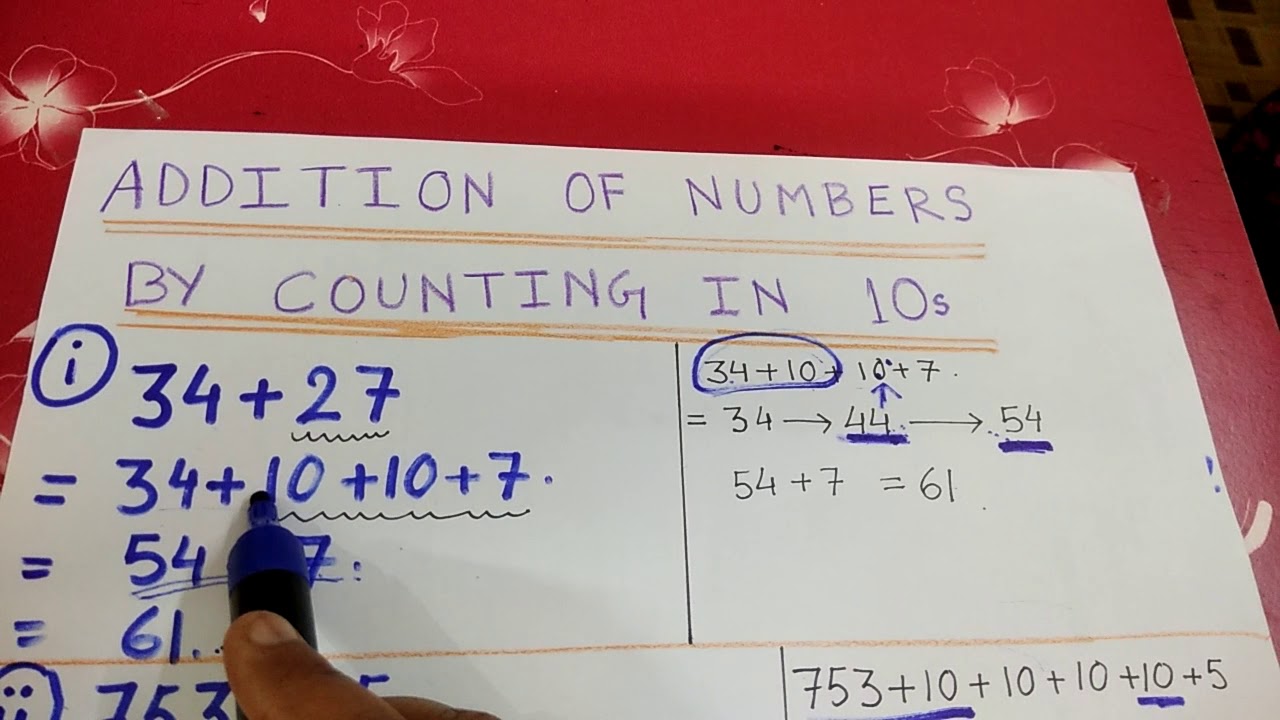 ADDITION OF NUMBERS
BY COUNTING IN 10s
i 34+27
= 34+10+10+7.
= 54 7.
= 61..
34+10+10+7.
= 34→44→54
54+7 = 61
ii 753 5
753+10+10+10+10+5